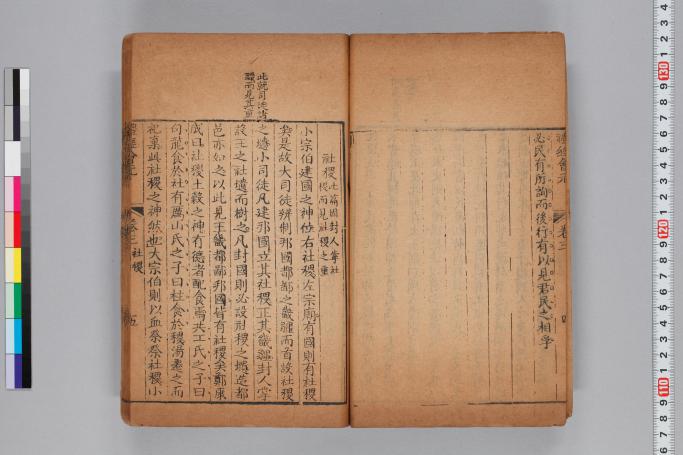 禮經會元
卷三
必民有所詢而後行有以見君民之相孚
社稷此篇因封人掌社
稷而見社稷之重
小宗伯建國之神位右社稷左宗廟有國則有社稷
矣是故大司徒辨制邦國都鄙之畿疆而首設社稷
之壝小司徒凡建邦國立其社稷正其畿疆封人掌
設王之社壝而樹之凡封國則必設社稷之壝造都
邑亦如之以此見王畿都鄙邦國皆有社稷矣鄭康
成曰社稷土穀之神有德者配食焉共工氏之子曰
句龍食於社有厲山氏之子曰柱食於稷湯遷之而
祀棄此社稷之神然也大宗伯則以血祭祭社稷小
此就司徒
而見其
卷三 社稷
五